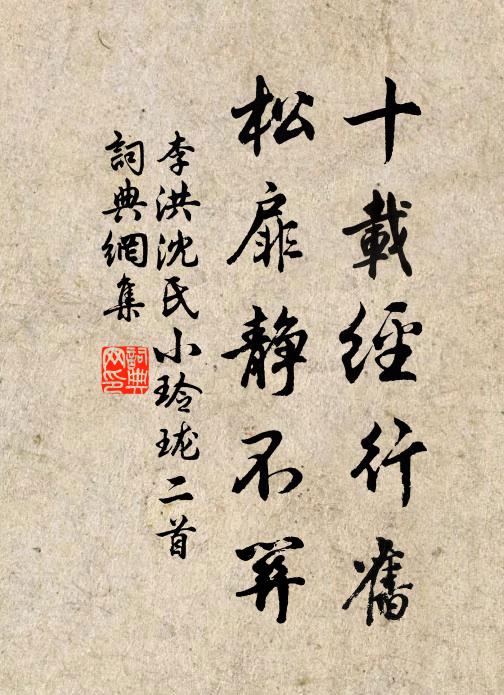 十載經行舊
松扉静不開
李洪沈氏小玲珑二首
詞典網集
詞典网印